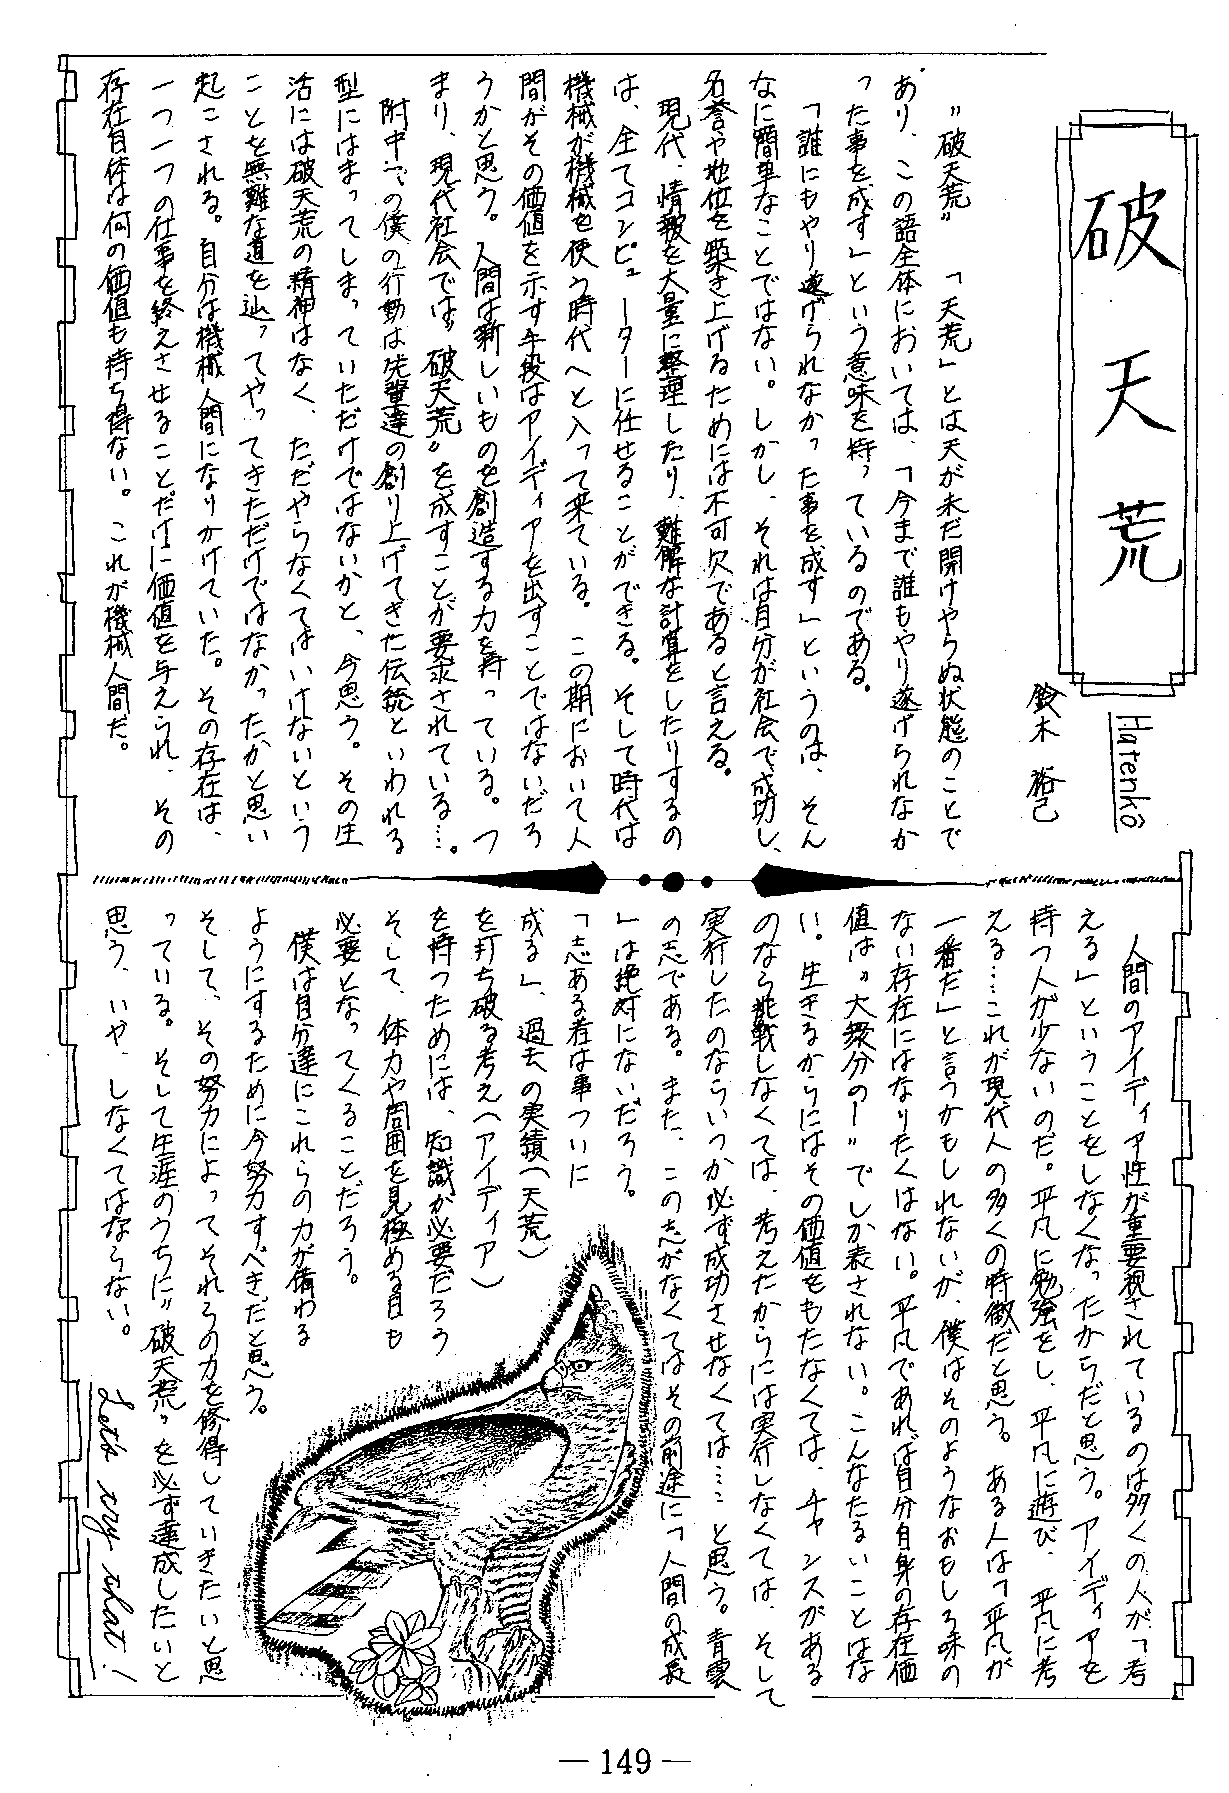 破天荒
Hatenkô
鈴木 裕己
〝破天荒〟 「天荒」とは天が未だ開けやらぬ状態のことで
あり、この語全体においては、「今まで誰もやり遂げられなか
った事を成す」という意味を持っているのである。
「誰にもやり遂げられなかった事を成す」というのは、そん
なに簡単なことではない。しかし、それは自分が社会で成功し、
名誉や地位を築き上げるためには不可欠であると言える。
現代、情報を大量に整理したり、難解な計算をしたりするの
は、全てコンピューターに任せることができる。そして時代は
機械が機械を使う時代へと入って来ている。この期において人
間がその価値を示す手段はアイディアを出すことではないだろ
うかと思う。人間は新しいものを創造する力を持っている。つ
まり、現代社会では〝破天荒〟を成すことが要求されている…。
附中での僕の行動は先輩達の創り上げてきた伝統といわれる
型にはまってしまっていただけではないかと、今思う。その生
活には破天荒の精神はなく、ただやらなくてはいけないという
ことを無難な道を辿ってやってきただけではなかったかと思い
起こされる。自分は機械人間になりかけていた。その存在は、
一つ一つの仕事を終えさせることだけに価値を与えられ、その
存在自体は何の価値も持ち得ない。これが機械人間だ。
人間のアイディア性が重要視されているのは多くの人が「考
える」ということをしなくなったからだと思う。アイディアを
持つ人が少ないのだ。平凡に勉強をし、平凡に遊び、平凡に考
える……これが現代人の多くの特徴だと思う。ある人は「平凡が
一番だ」と言うかもしれないが、僕はそのようなおもしろ味の
ない存在にはなりたくはない。平凡であれば自分自身の存在価
値は〝大衆分の一〟でしか表されない。こんなたるいことはな
い。生きるからにはその価値をもたなくては、チャンスがある
のなら挑戦しなくては、考えたからには実行しなくては、そして
実行したのならいつか必ず成功させなくては……と思う。青雲
の志である。また、この志がなくてはその前途に「人間の成長
」は絶対にないだろう。
「志ある者は事ついに
成る」、過去の実績（天荒）
を打ち破る考え（アイディア）
を持つためには、知識が必要だろう
そして、体力や周囲を見極める目も
必要となってくることだろう。
僕は自分達にこれらの力が備わる
ようにするために今努力すべきだと思う。
そして、その努力によってそれらの力を修得していきたいと思
っている。そして生涯のうちに〝破天荒〟を必ず達成したいと
思う、いや、しなくてはならない。
Let's try that!
—149—